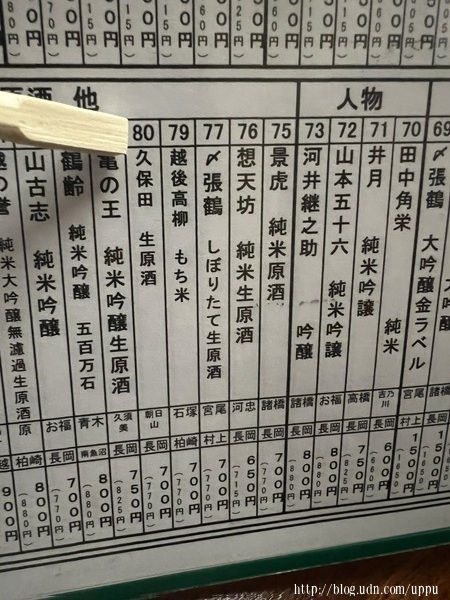 人物
酒 他
69 〆張鶴 大吟醸金ラベル 宮尾 村上 1500円 (1650円)
70 田中角栄 純米 吉乃川 長岡 600円 (660円)
71 井月 純米吟譲 高橋 長岡 750円 (825円)
72 山本五十六 純米吟譲 お福 長岡 800円 (880円)
73 河井継之助 吟醸 諸橋 長岡 800円 (880円)
75 景虎 純米原酒 諸橋 長岡 700円 (770円)
76 想天坊 純米生原酒 河忠 長岡 650円 (715円)
77 〆張鶴 しぼりたて生原酒 宮尾 村上 700円 (770円)
79 越後高柳 もち米 石塚 柏崎 700円 (770円)
80 久保田 生原酒 朝日山 長岡 700円 (770円)
亀の王 純米吟醸生原酒 久須美 長岡 750円 (825円)
鶴齢 純米吟醸 五百万石 青木 南魚沼 800円 (880円)
山古志 純米吟醸 お福 長岡 700円 (770円)
の誉 純米大吟醸無濾過生原酒 原 柏崎 800円 (880円)
900円
http://blog.udn.com/uppu